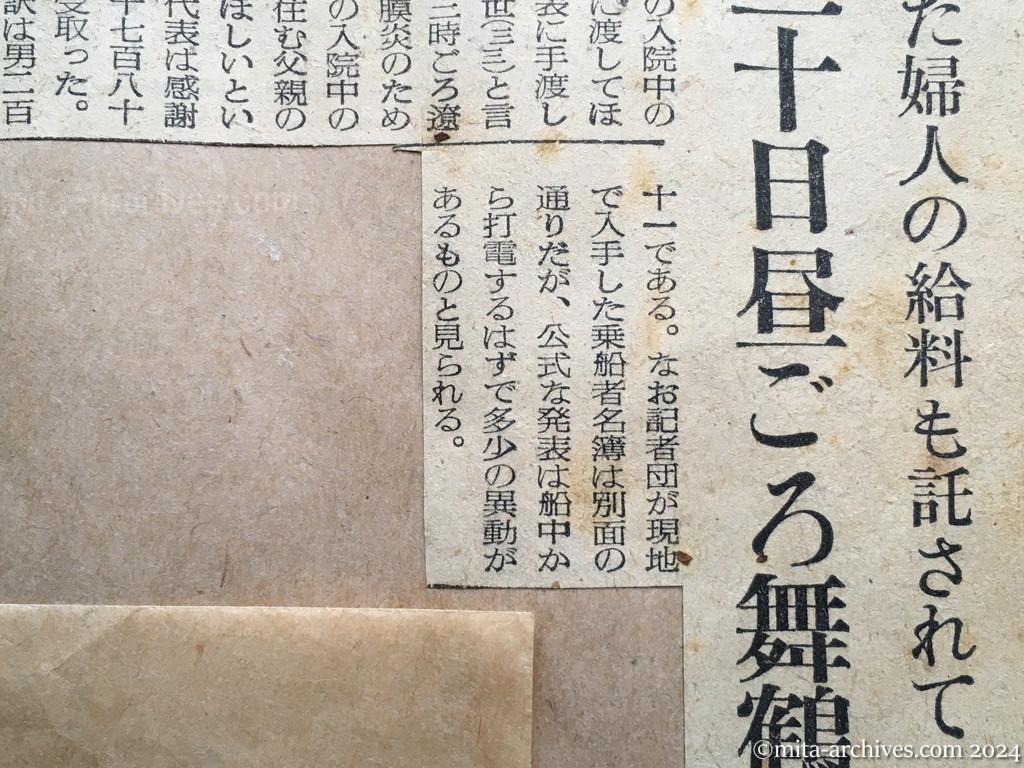 た婦人の給料も託されて
十日昼ごろ舞鶴
の入院中の
に渡してほ
表に手渡し
世(三三)と言
三時ごろ遼
膜炎のため
の入院中の
住む父親の
ほしいとい
代表は感謝
十七百八十
受取った。
訳は男二百
十一である。なお記者団が現地
で入手した乗船者名簿は別面の
通りだが、公式な発表は船中か
ら打電するはずで多少の異動が
あるものと見られる。
mita-archives.com
©mita-archives.com 2024